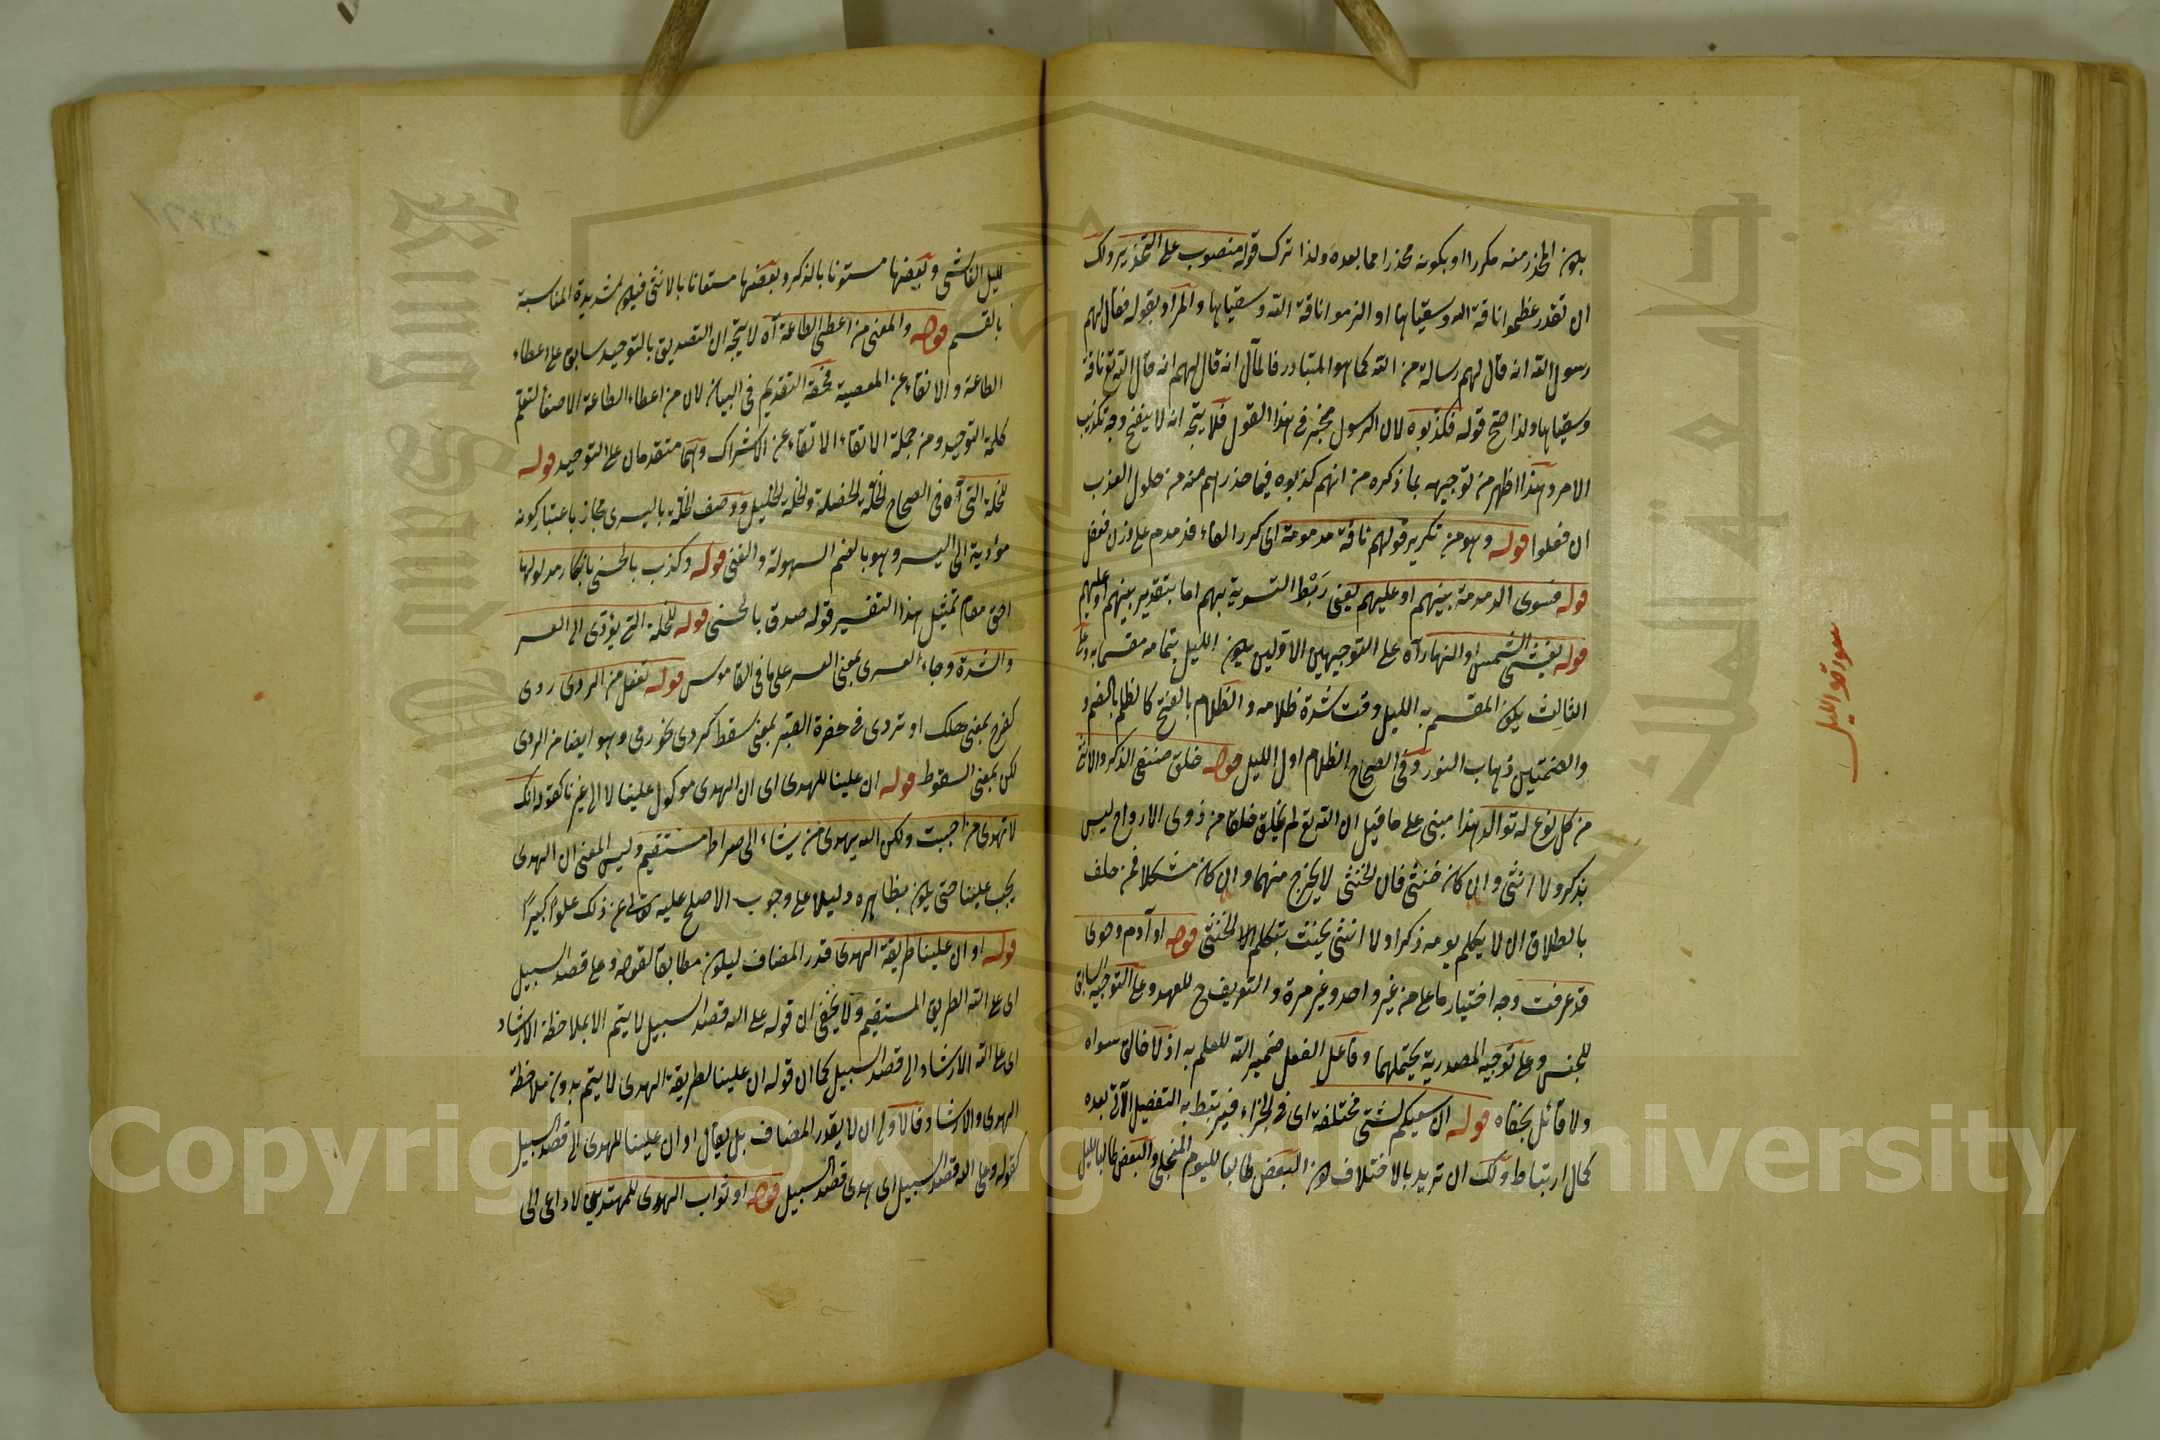 يكون المحذر منه مكررا او بكونه محذرا مما بعده ولذا ترك قوله منصوب على التحذير ولك
ان تقدر عظموا ناقة الله وسقياها او الزموا ناقة الله وسقياها والمراد بقوله فقال لهم
رسول الله انه قال لهم رسالة من الله كما هو المتبادر فالمآل انه قال لهم انه قال الله تع ناقة
وسقياها ولذا صح قوله فكذبوه لان الرسول مخبر في هذا القول فلا يتجه انه لا يتضح وجه تكذيب
الامر وهذا اظهر من توجيهه بما ذكره من انهم كذبوه فيما حذرهم منه من حلول العذب
ان فعلوا قوله وهو من تكرير قولهم ناقة مدمومة اى كرر الفاء فدمدم على وزن فعفل
قوله فسوى الدمدمة بينهم او عليهم يعنى ربط التسوية بهم اما بتقدير بينهم او عليهم
قوله يغشى الشمس او النهار آه على التوجيهين الاولين يكون الليل بتمامه مقسما به وعلى
الثالث يكون المقسم به الليل وقت شدة ظلامه والظلام بالفتح كالظلم بالضم و
والضمتين ذهاب النور وفي الصحاح الظلام اول الليل قوله خلق صنفى الذكر والانثى
من كل نوع له توالد هذا مبنى على ما قيل ان الله تع لم يخلق خلقا من ذوى الارواح ليس
بذكر ولا انثى وان كان خنثى فان الخنثى لا يخرج منهما وان كان مشكلا فمن حلف
بالطلاق ان لا يكلم يومه ذكرا ولا انثى يحنث بتكلم الخنثى قوله او آدم وحوى
قد عرفت وجه اختيار ما على من غير واحد وغير مرة والتعريف ح للعهد وعلى التوجيه السابق
للجنس وعلى توجيه المصدرية يحتملهما وفاعل الفعل ضمير الله للعلم به اذ لا خالق سواه
ولا قائل بخفاه قوله ان سعيكم لشتى مختلفة اى في الجزاء فيرتبط به التفصيل الآتى بعده
كمال ارتباط ولك ان تريد بالاختلاف كون البعض طالبا لليوم المتجلى والبعض طالبا لليل
سورة والليل
لليل الغاشى وبعضها مستونا بالذكر وبعضها مستعانا بالانثى فيكون شديدة المناسبة
بالقسم قوله والمعنى من اعطى الطاعة آه لا يتجه ان التصديق بالتوحيد سابق على اعطاء
الطاعة والاتقاء عن المعصية فحقه التقديم في البيان لان من اعطاء الطاعة الاصغاء لتعلم
كلمة التوحيد ومن جملة الاتقاء الاتقاء عن الاشراك وهما متقدمان على التوحيد قوله
للخلة التى آه في الصحاح الخلة الخصلة والخلة الخليل ووصف الخلة باليسرى مجاز باعتبار كونه
مؤدية الى اليسر وهو بالضم السهولة والغنى قوله وكذب بالحسنى بانكار مدلولها
احق مقام تمثيل هذا التفسير قوله صدق بالحسنى قوله للخلة التى يؤدى الى العسر
والشدة وجاء العسرى بمعنى العسر على ما في القاموس قوله تفعل من الردى روى
كفرح بمعنى هلك او تردى في حفرة القبر بمعنى سقط كردى نحو رمى وهو ايضا من الردى
لكن بمعنى السقوط قوله ان علينا للهدى اى ان الهدى موكول علينا لا الى غيرنا كقوله انك
لا تهدى من احببت ولكن الله يهدى من يشاء الى صراط مستقيم وليس المعنى ان الهدى
يجب علينا حتى يكون بظاهره دليلا على وجوب الاصلح عليه تعالى عن ذلك علوا كبيرا
قوله او ان علينا طريقة الهدى قدر المضاف ليكون مطابقا لقوله وعلى قصد السبيل
اى على الله الطريق المستقيم ولا يخفى ان قوله على الله قصد السبيل لا يتم الا بملاحظة الارشاد
اى على الله الارشاد الى قصد السبيل كما ان قوله ان علينا لطريقة الهدى لا يتم بدون ملاحظة
الهدى والارشاد فالاولى ان لا يقدر المضاف بل يقال او ان علينا للهدى الى قصد السبيل
كقوله وعلى الله قصد السبيل اى هدى قصد السبيل قوله او ثواب الهدى للمهتدين لا داعى الى
Copyright © King Saud University